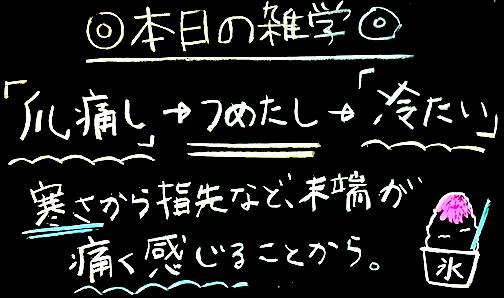 ◎本日の雑学◎
「爪痛し」→つめたし→「冷たい」
寒さから指先など、末端が
痛く感じることから。
氷